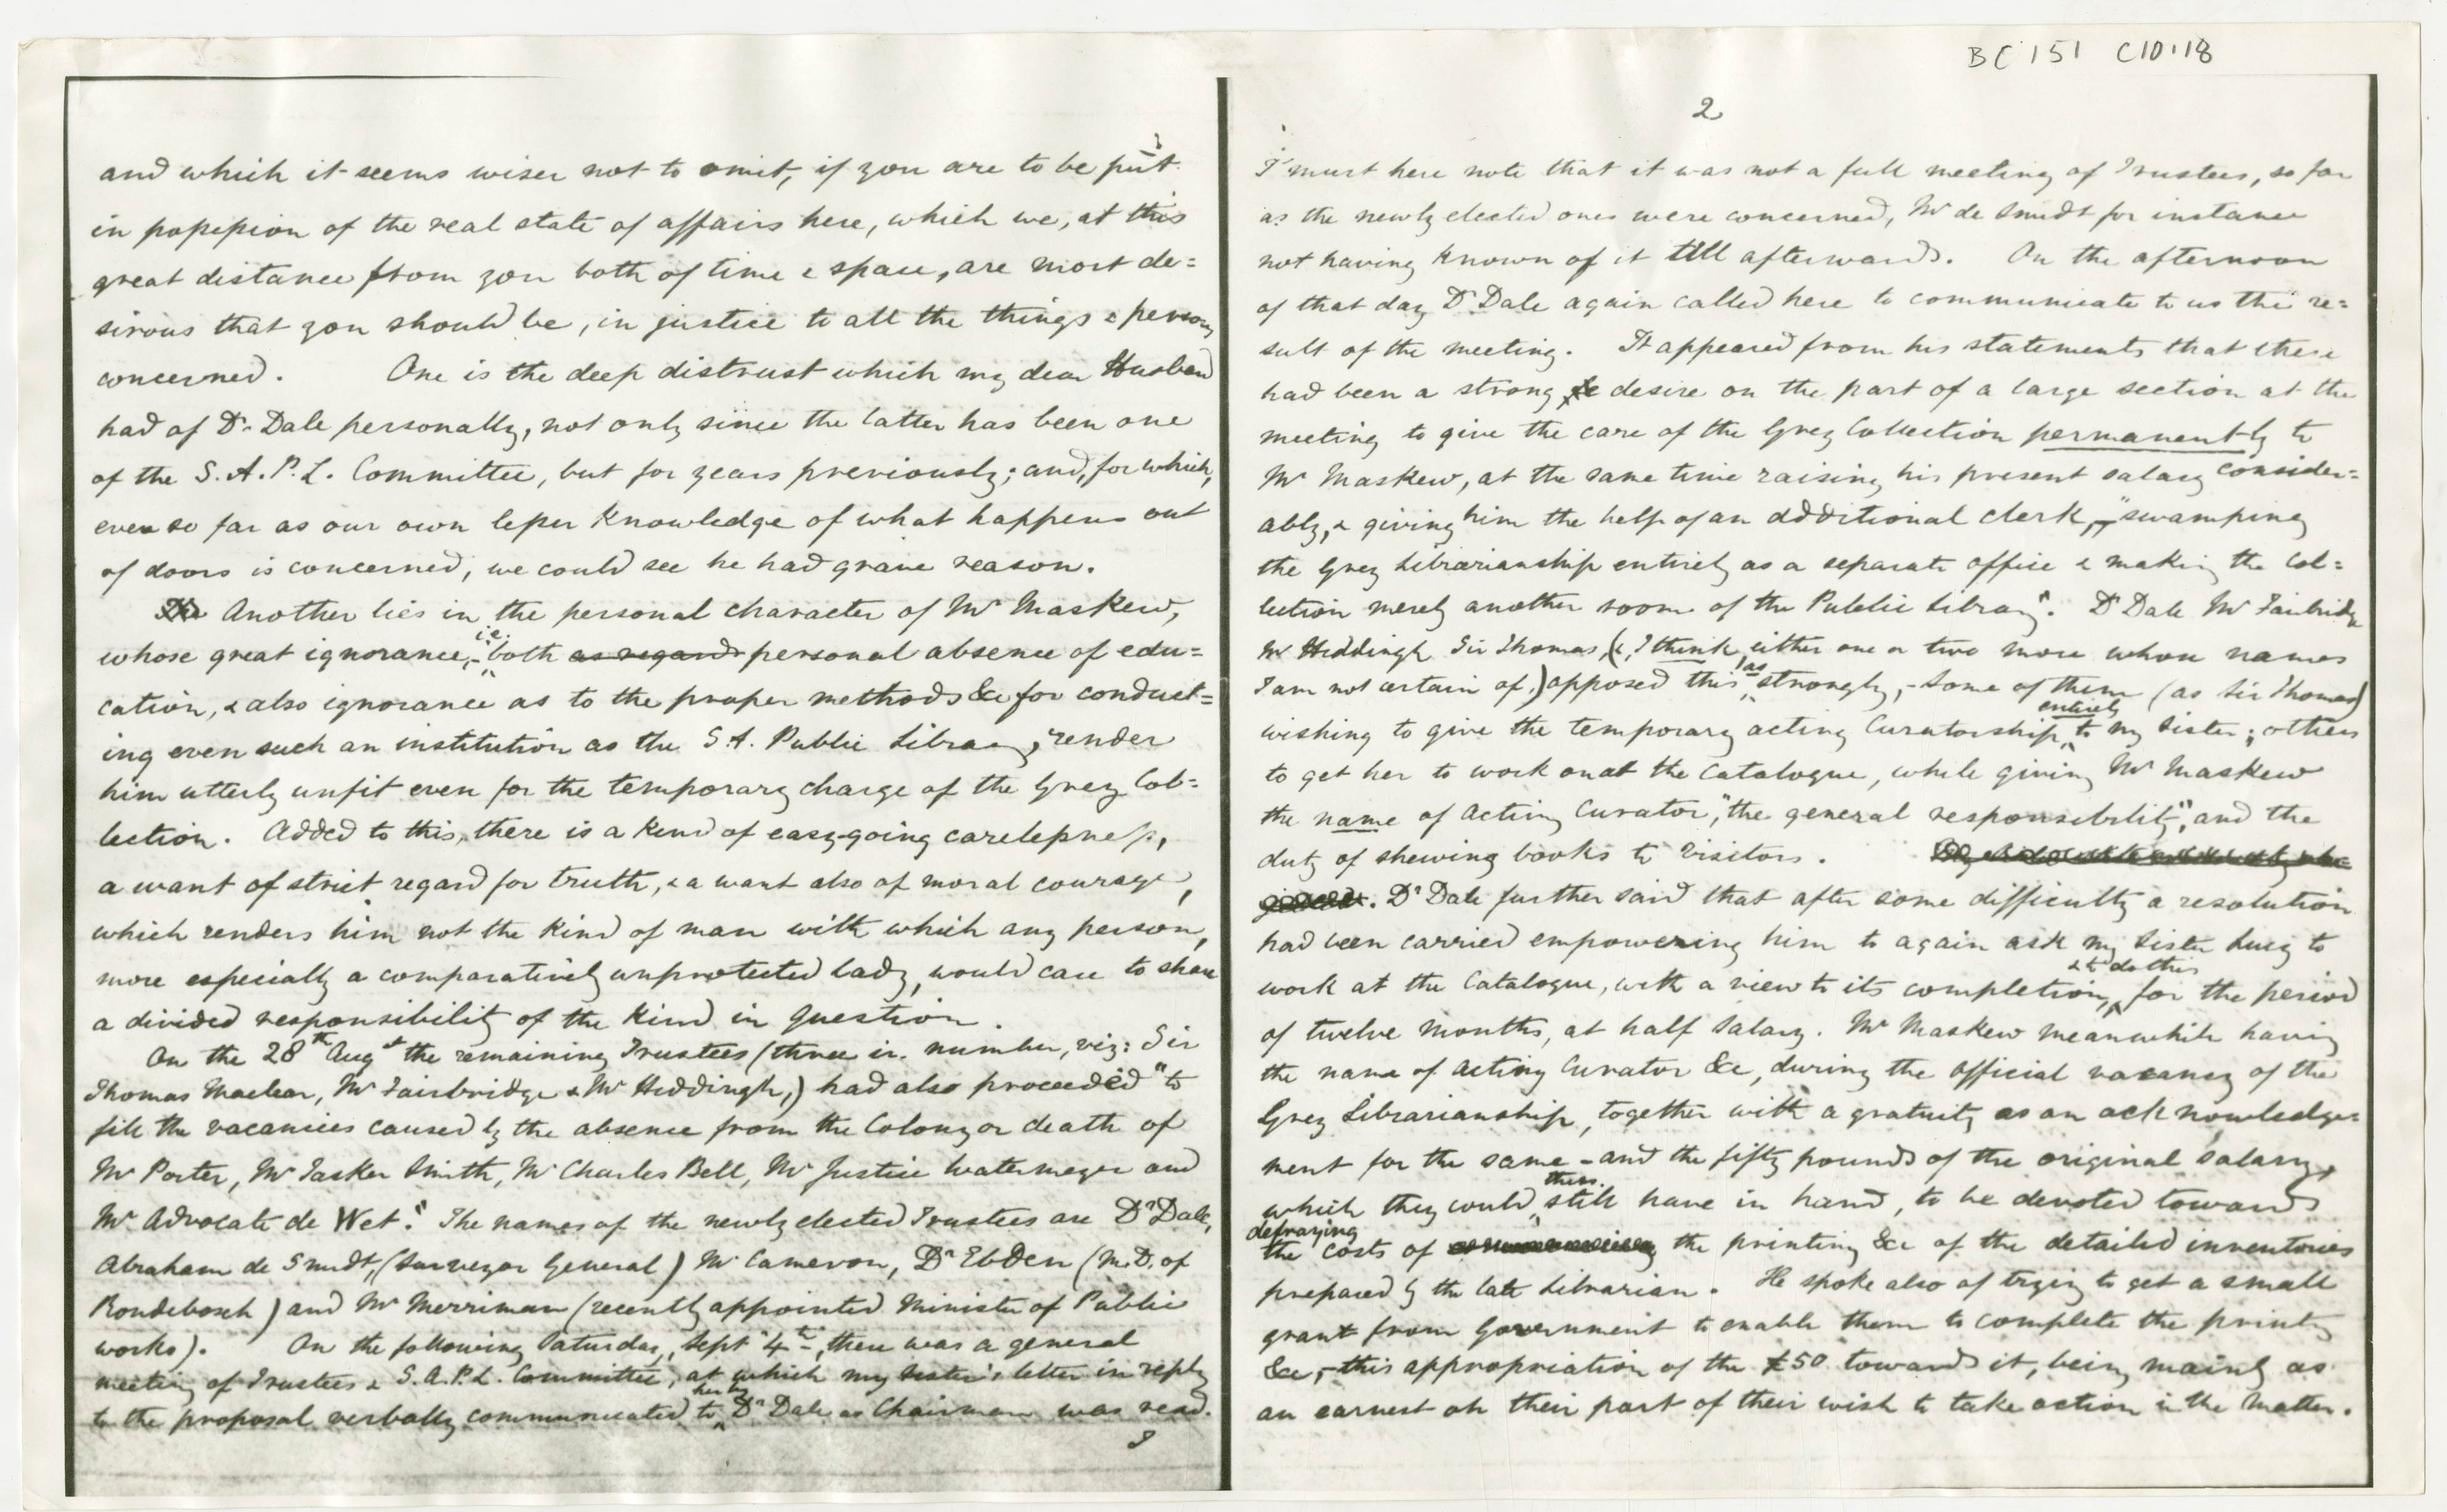 BC 151 C10.18
and which it seems wiser not to omit, if you are to be put
in possession of the real state of affairs here, which we, at this
great distance from you both of time & space, are most de=
sirous that you should be, in justice to all the things & persons
concerned. One is the deep distrust which my dear Husband
had of Dr. Dale personally, not only since the latter has been one
of the S.A.P.L. Committee, but for years previously; and, for which,
even so far as our own lesser knowledge of what happens out
of doors is concerned, we could see he had grave reason.
Another lies in the personal character of Mr Maskew,
whose great ignorance, - i.e. both as regards personal absence of edu=
cation, & also ignorance as to the proper methods &c for conduct=
ing even such an institution as the S.A. Public Library, render
him utterly unfit even for the temporary charge of the Grey Col=
lection. Added to this, there is a kind of easy-going carelessness,
a want of strict regard for truth, & a want also of moral courage,
which renders him not the kind of man with which any person,
more especially a comparatively unprotected lady, would care to share
a divided responsibility of the kind in question.
On the 28th Augst the remaining Trustees (three in number, viz: Sir
Thomas Maclear, Mr Fairbridge & Mr Hiddingh,) had also proceeded "to
fill the vacancies caused by the absence from the Colony or death of
Mr Porter, Mr Tasker Smith, Mr Charles Bell, Mr Justice Watermeyer and
Mr Advocate de Wet." The names of the newly elected Trustees are Dr Dale,
Abraham de Smidt, (Surveyor General) Mr Cameron, Dr Ebden (M.D. of
Rondebosch) and Mr Merriman (recently appointed Minister of Public
works). On the following Saturday, Sept 4th, there was a general
meeting of Trustees & S.A.P.L. Committee, at which my sister's letter in reply
to the proposal verbally communicated to her by Dr Dale as Chairman was read.
I
2
I must here note that it was not a full meeting of Trustees, so far
as the newly elected ones were concerned, Mr de Smidt for instance
not having known of it till afterwards. On the afternoon
of that day Dr Dale again called here to communicate to us the re=
sult of the meeting. It appeared from his statements that there
had been a strong desire on the part of a large section at the
meeting to give the care of the Grey Collection permanently to
Mr Maskew, at the same time raising his present salary consider=
ably, & giving him the help of an additional clerk, "swamping
the Grey Librarianship entirely as a separate office & making the col=
lection merely another room of the Public Library". Dr Dale Mr Fairbridge
Mr Hiddingh Sir Thomas, (&, I think, either one or two more whose names
I am not certain of,) opposed this as strongly, - some of them (as Sir Thomas)
wishing to give the temporary acting Curatorship entirely to my Sister; others
to get her to work on at the Catalogue, while giving Mr Maskew
the name of Acting Curator, "the general responsibility", and the
duty of shewing books to visitors.
Dr Dale further said that after some difficulty a resolution
had been carried empowering him to again ask my Sister Lucy to
work at the Catalogue, with a view to its completion, & to do this for the period
of twelve months, at half salary. Mr Maskew meanwhile having
the name of Acting Curator &c, during the official vacancy of the
Grey Librarianship, together with a gratuity as an acknowledge=
ment for the same - and the fifty pounds of the original salary,
which they would thus still have in hand, to be devoted towards
defraying the costs of the printing &c of the detailed inventories
prepared by the late Librarian. He spoke also of trying to get a small
grant from Government to enable them to complete the printing
&c, - this appropriation of the £50 towards it, being mainly as
an earnest on their part of their wish to take action in the matter.